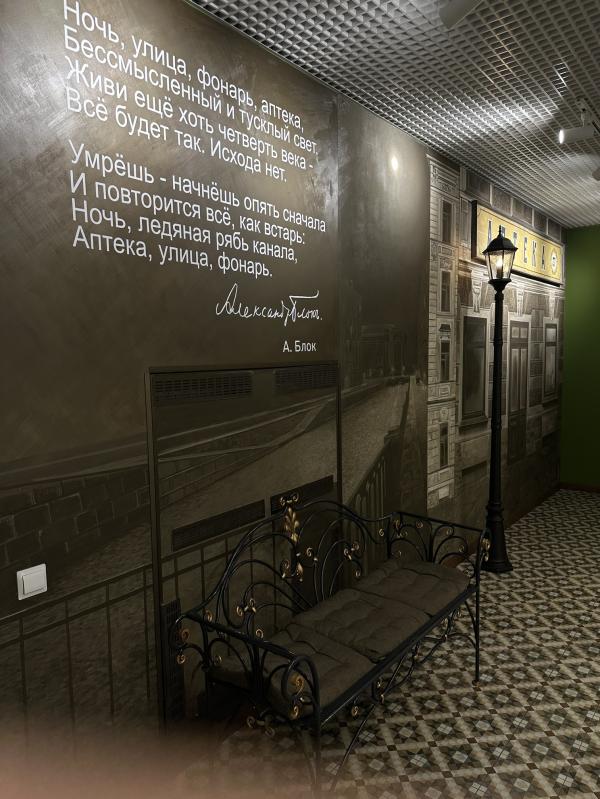 Ночь, улица, фонарь, аптека,
Бессмысленный и тусклый свет.
Живи ещё хоть четверть века -
Всё будет так. Исхода нет.
Умрёшь - начнёшь опять сначала
И повторится всё, как встарь:
Ночь, ледяная рябь канала,
Аптека, улица, фонарь.
Александр Блок.
А. Блок
АПТЕКА